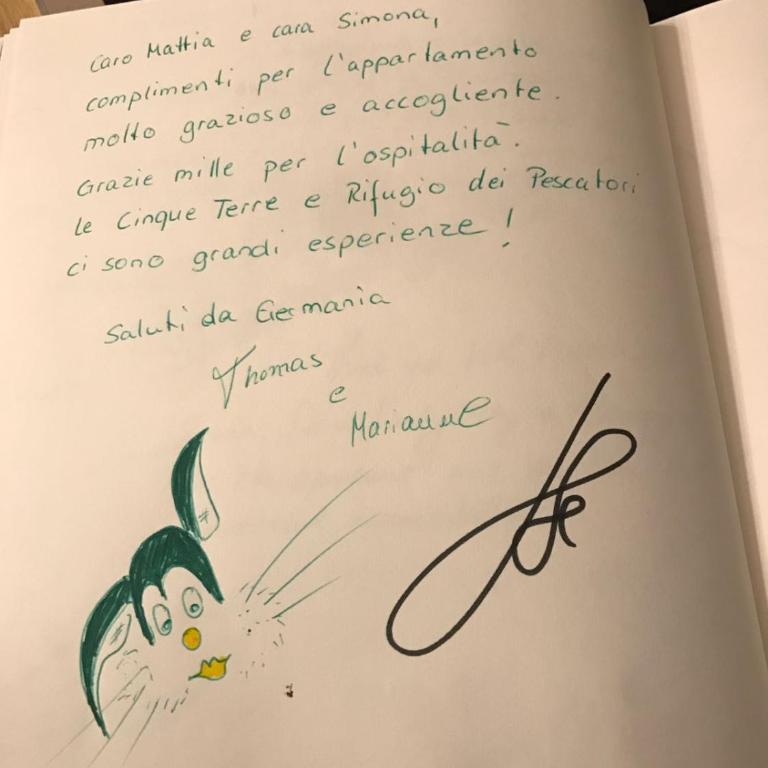 Caro Mattia e cara Simona,
complimenti per l'appartamento
molto grazioso e accogliente.
Grazie mille per l'ospitalità.
le Cinque Terre e Rifugio dei Pescatori
ci sono grandi esperienze!
Saluti da Germania
Thomas
e
Marianne